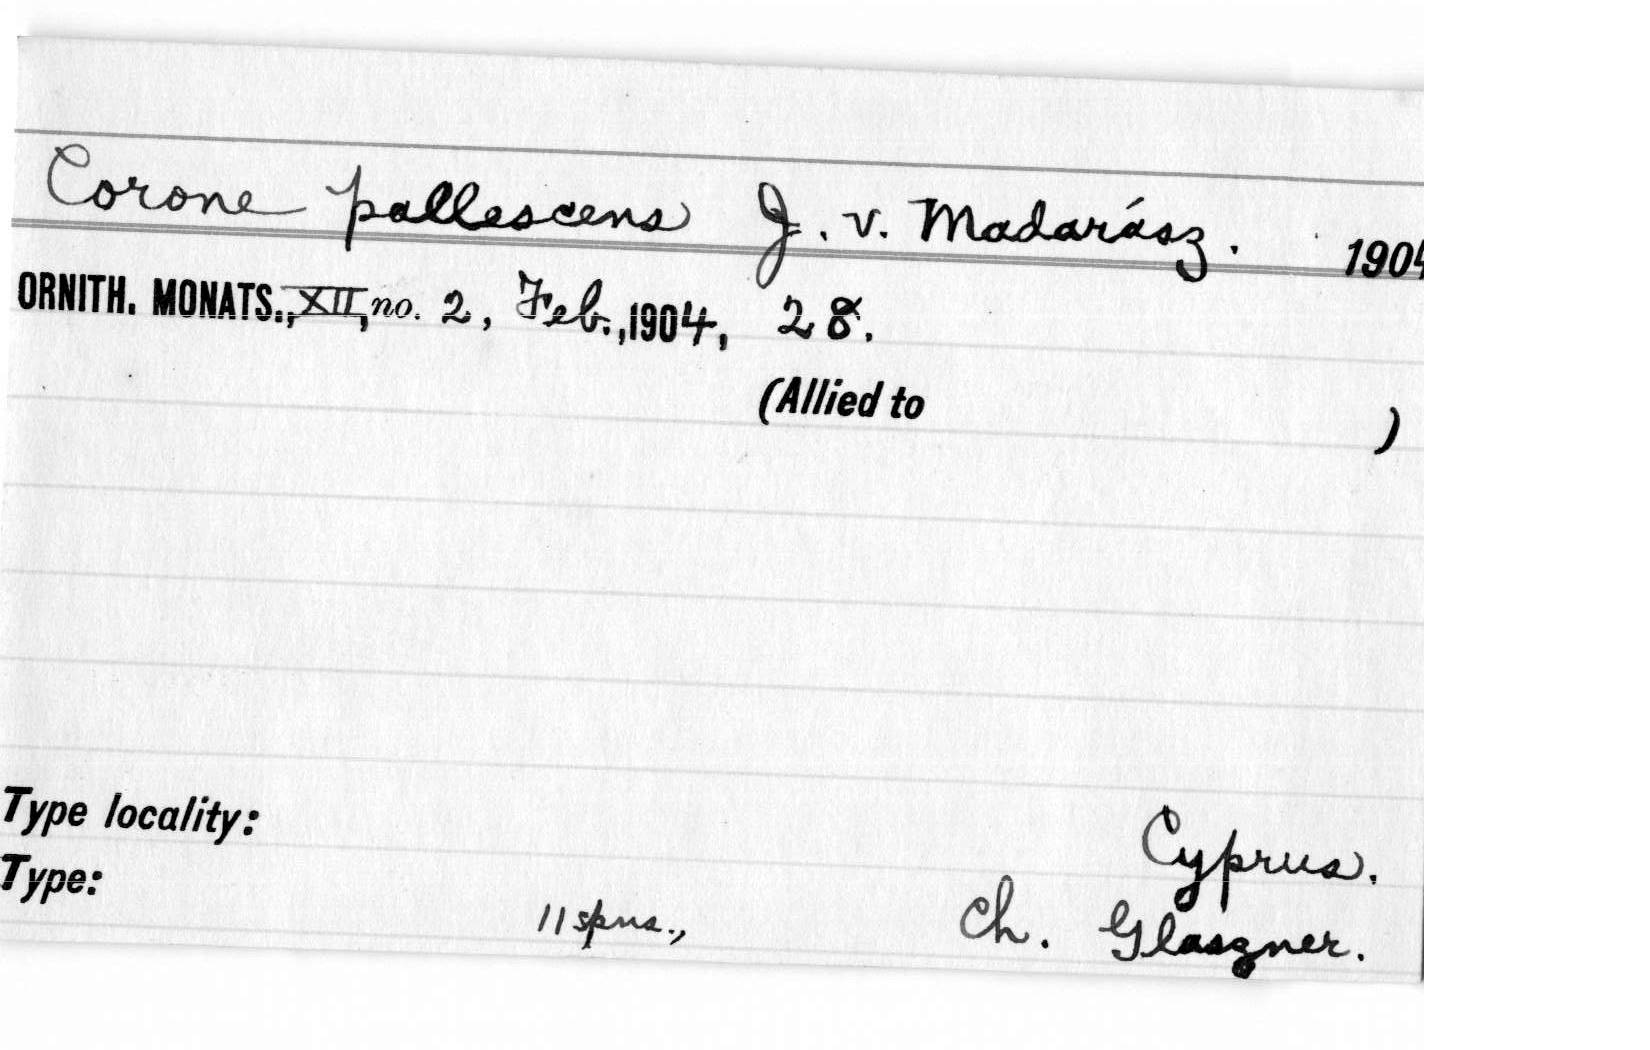 Corone pallescens J. v. Madarász. 1904
ORNITH. MONATS., XII, no. 2, Feb., 1904, 28.
(Allied to )
Type locality: Cyprus.
Type: 11 spns., Ch. Glaszner.